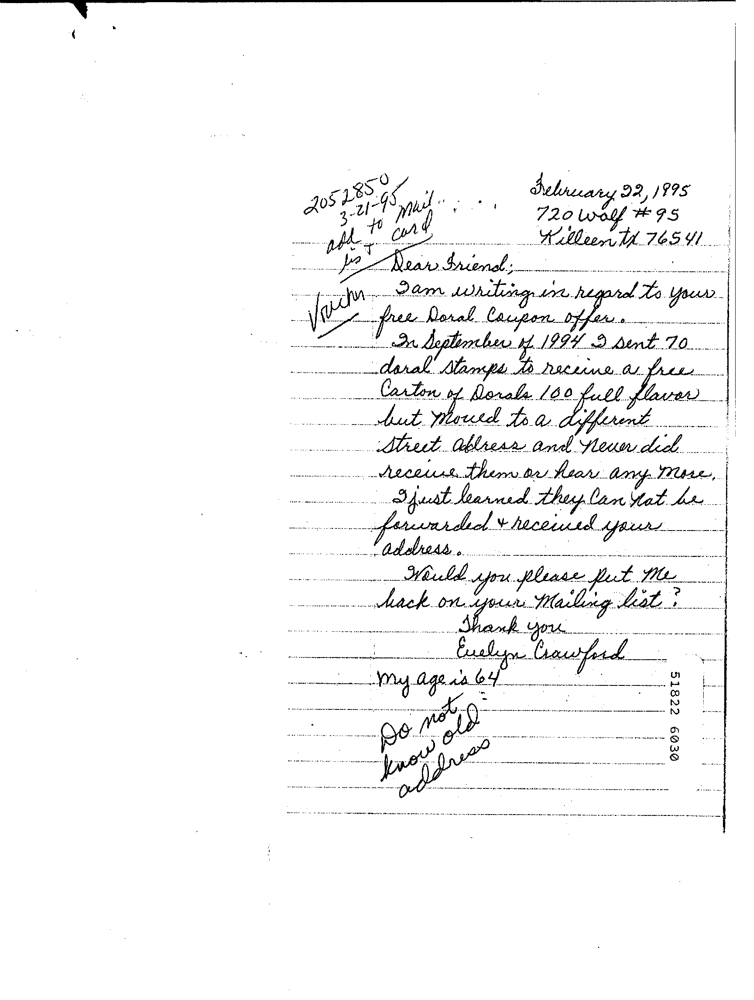 2052850
3-21-95
add to mail
list + card
Voucher
February 22, 1995
720 Wolf # 95
Killeen tx 76541
Dear Friend;
I am writing in regard to your
free Doral Coupon offer.
In September of 1994 I sent 70
doral stamps to receive a free
Carton of Dorals 100 full flavor
but moved to a different
street address and never did
receive them or hear any more.
I just learned they Can not be
forwarded + received your
address.
Would you please put me
back on your mailing list?
Thank you
Evelyn Crawford
my age is 64
Do not
know old
address
51822 6030